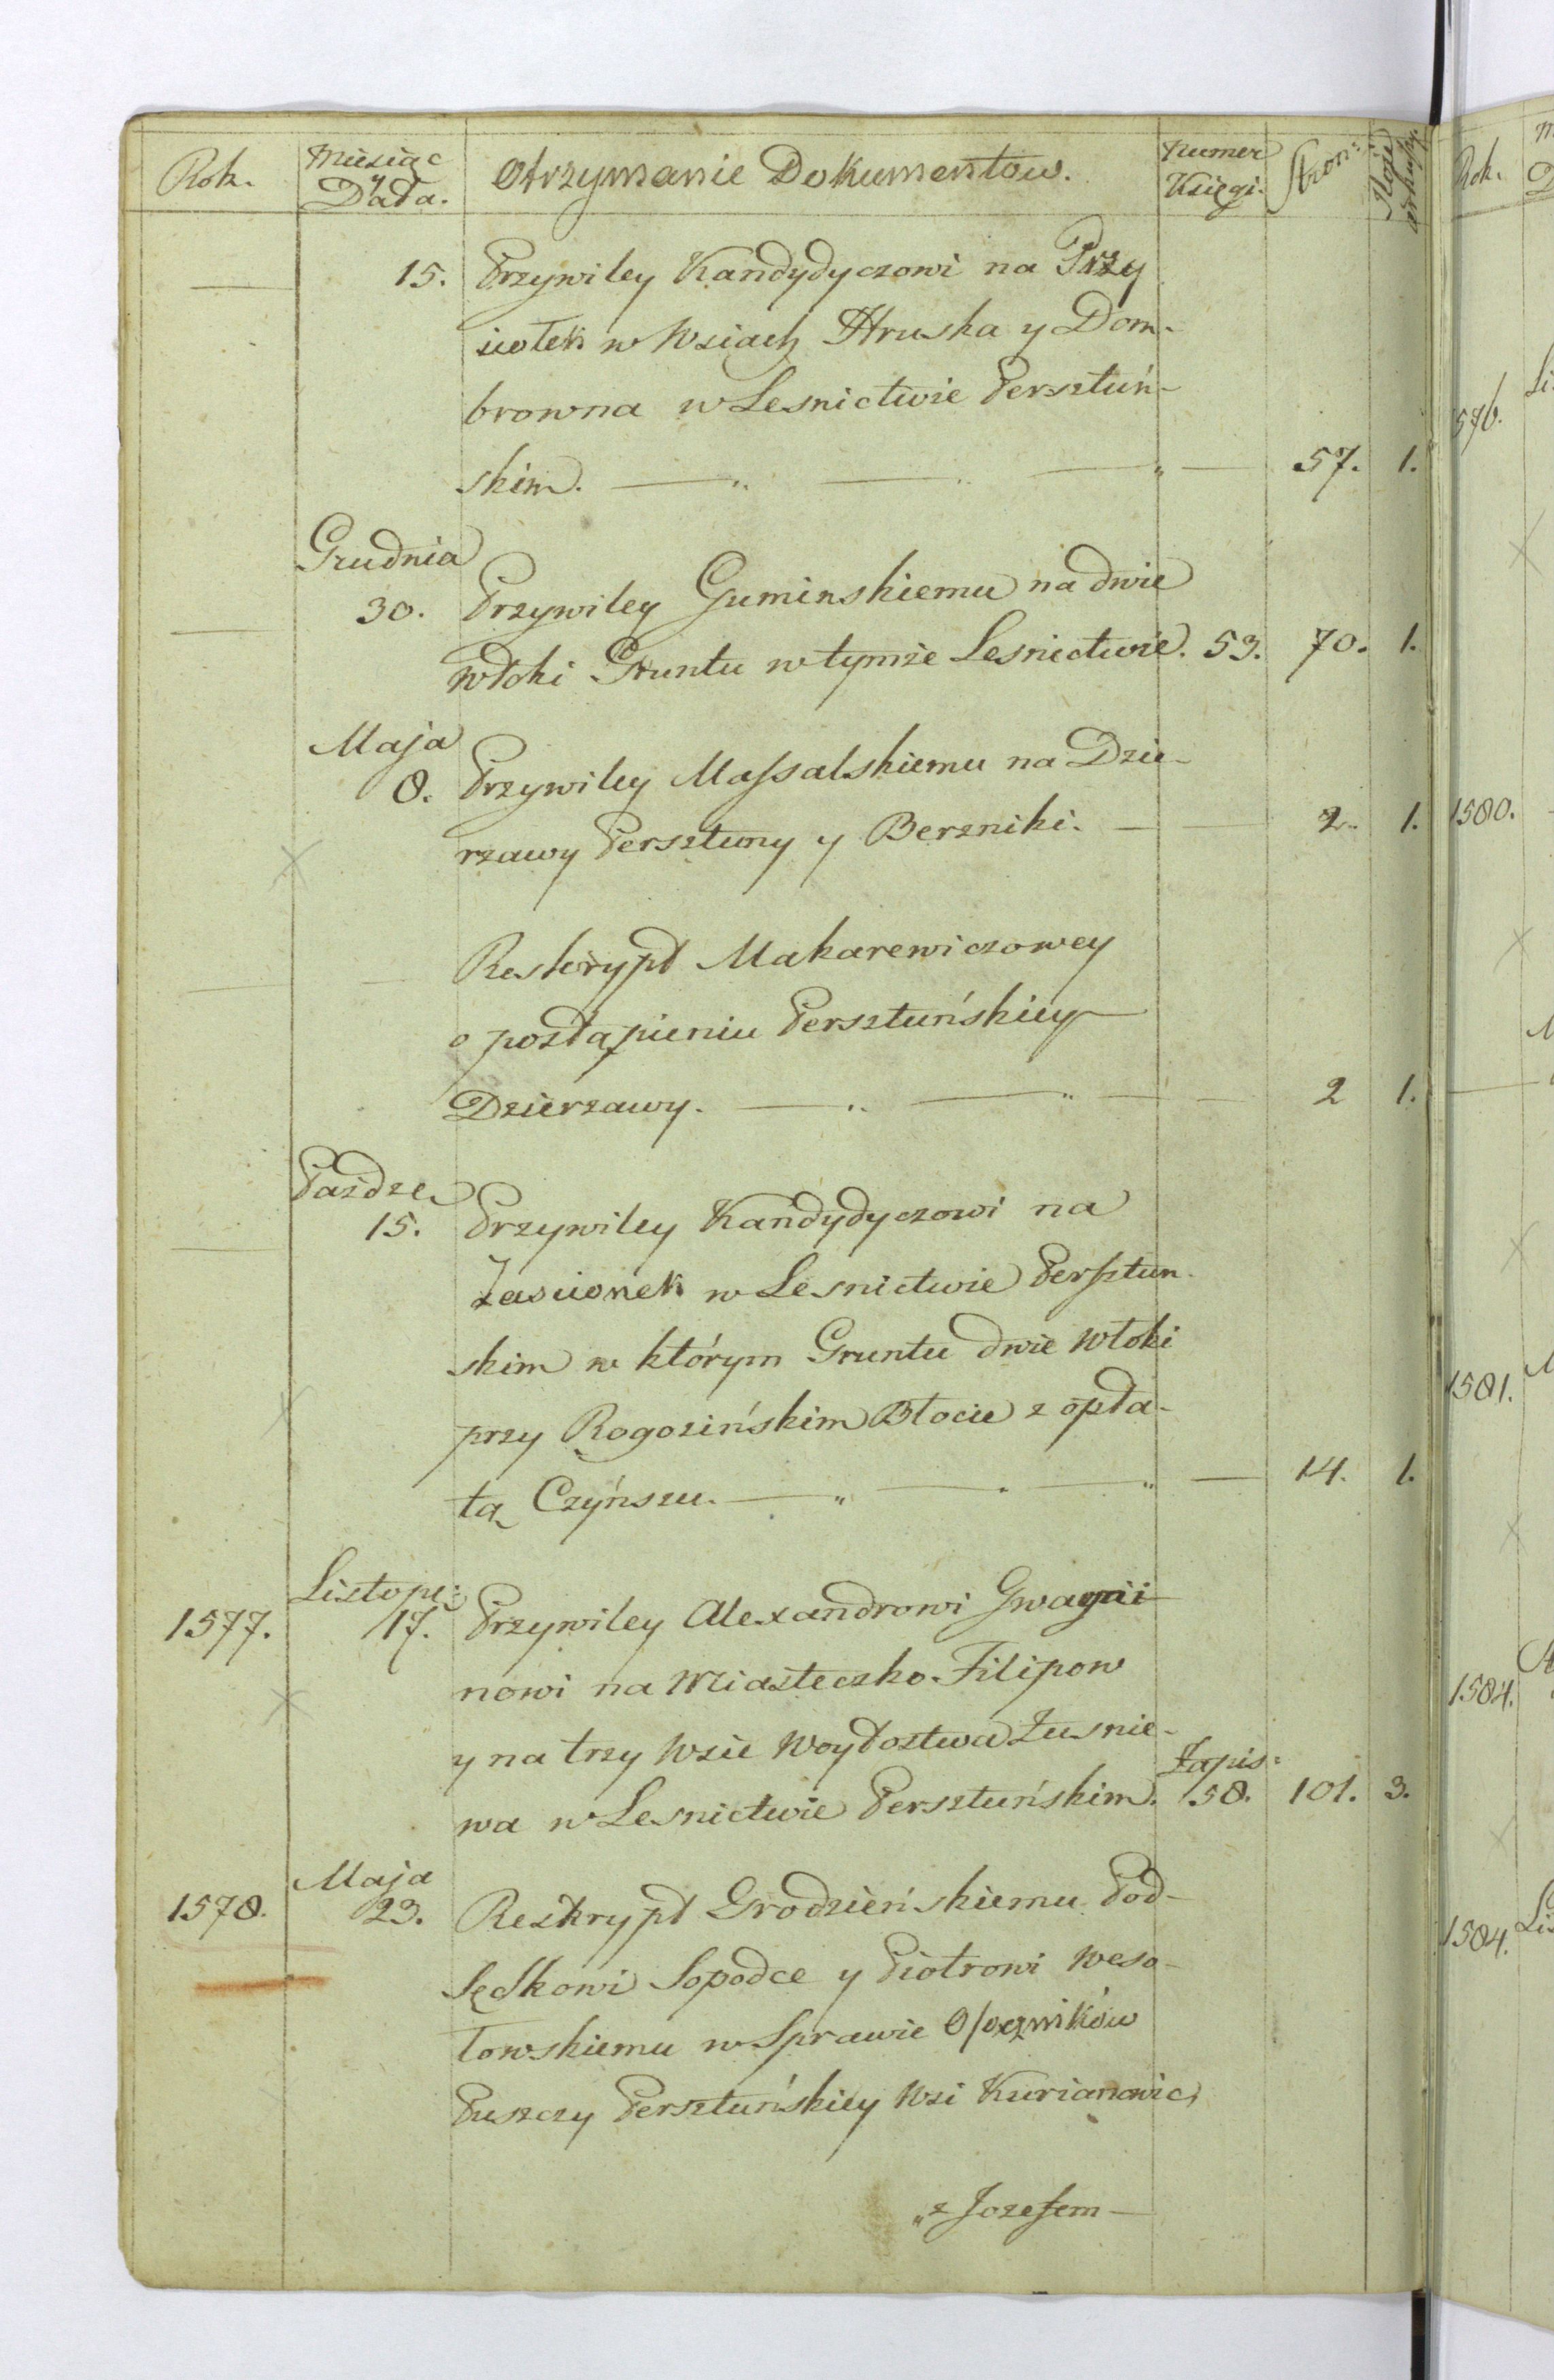 Rok. Miesiąc y Data. Otrzymanie Dokumentow. Numer Księgi. Stron: Ilość arkuszy.
15. Przywiley Kandydyczowi na Przy
ciołek w Wsiach Hruska y Dom-
browna w Lesnictwie Persztuń-
skim. 57. 1.
Grudnia
30. Przywiley Guminskiemu na dwie
włoki Gruntu w tymże Lesnictwie. 53. 70. 1.
Maja
8. Przywiley Massalskiemu na Dzie-
rzawy Persztuny y Berzniki. 2. 1.
Reskrypt Makarewiczowey
o postąpieniu Persztuńskiey
Dzierzawy. 2 1.
Paździe
15. Przywiley Kandydyczowi na
Zascionek w Lesnictwie Persztun
skim w którym Gruntu dwie włoki
przy Rogozińskim Błocie z opła-
tą Czyńszu. 14. 1.
Listopa:
1577. 17. Przywiley Alexandrowi Gwagni
nowi na Miasteczko Filipow
y na trzy Wsie Woytostwa Łusnie-
wa w Lesnictwie Persztuńskim. Zapis: 58. 101. 3.
Maja
1578. 23. Reskrypt Grodzieńskiemu Pod-
sędkowi Sopodce y Piotrowi Weso-
łowskiemu w Sprawie Osoczników
Puszczy Persztuńskiey Wsi Kurianowic
"z Jozefem